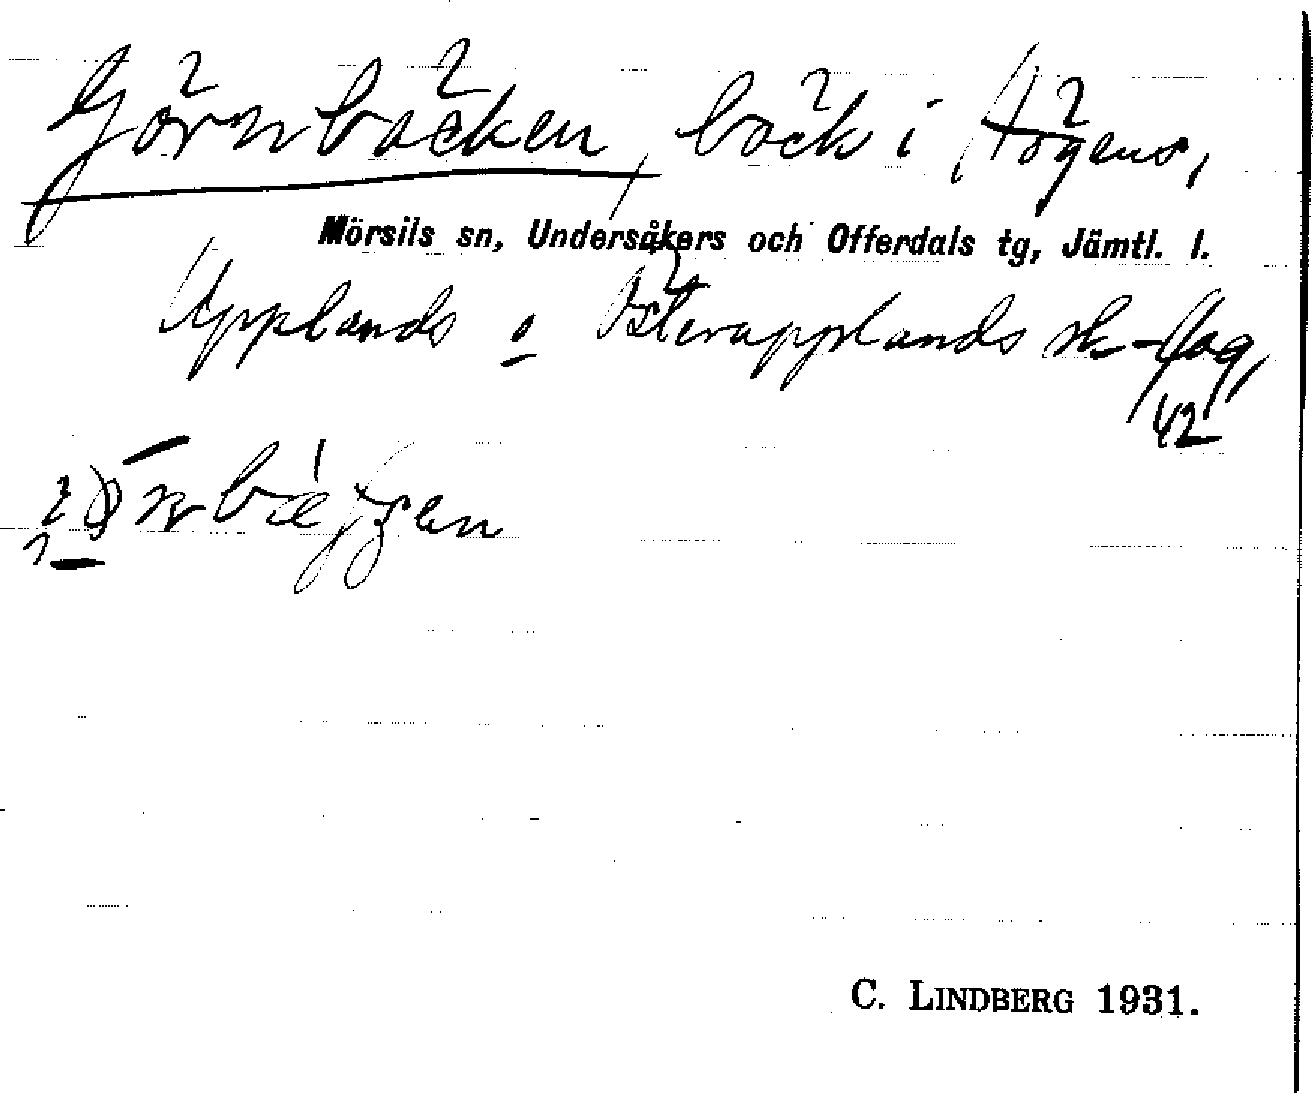 Görnbäcken, bäck i Högens,
Mörsils sn, Undersåkers och Offerdals tg, Jämtl. l.
Upplands o Österupplands sk-lag,
42
C. LINDBERG 1931.